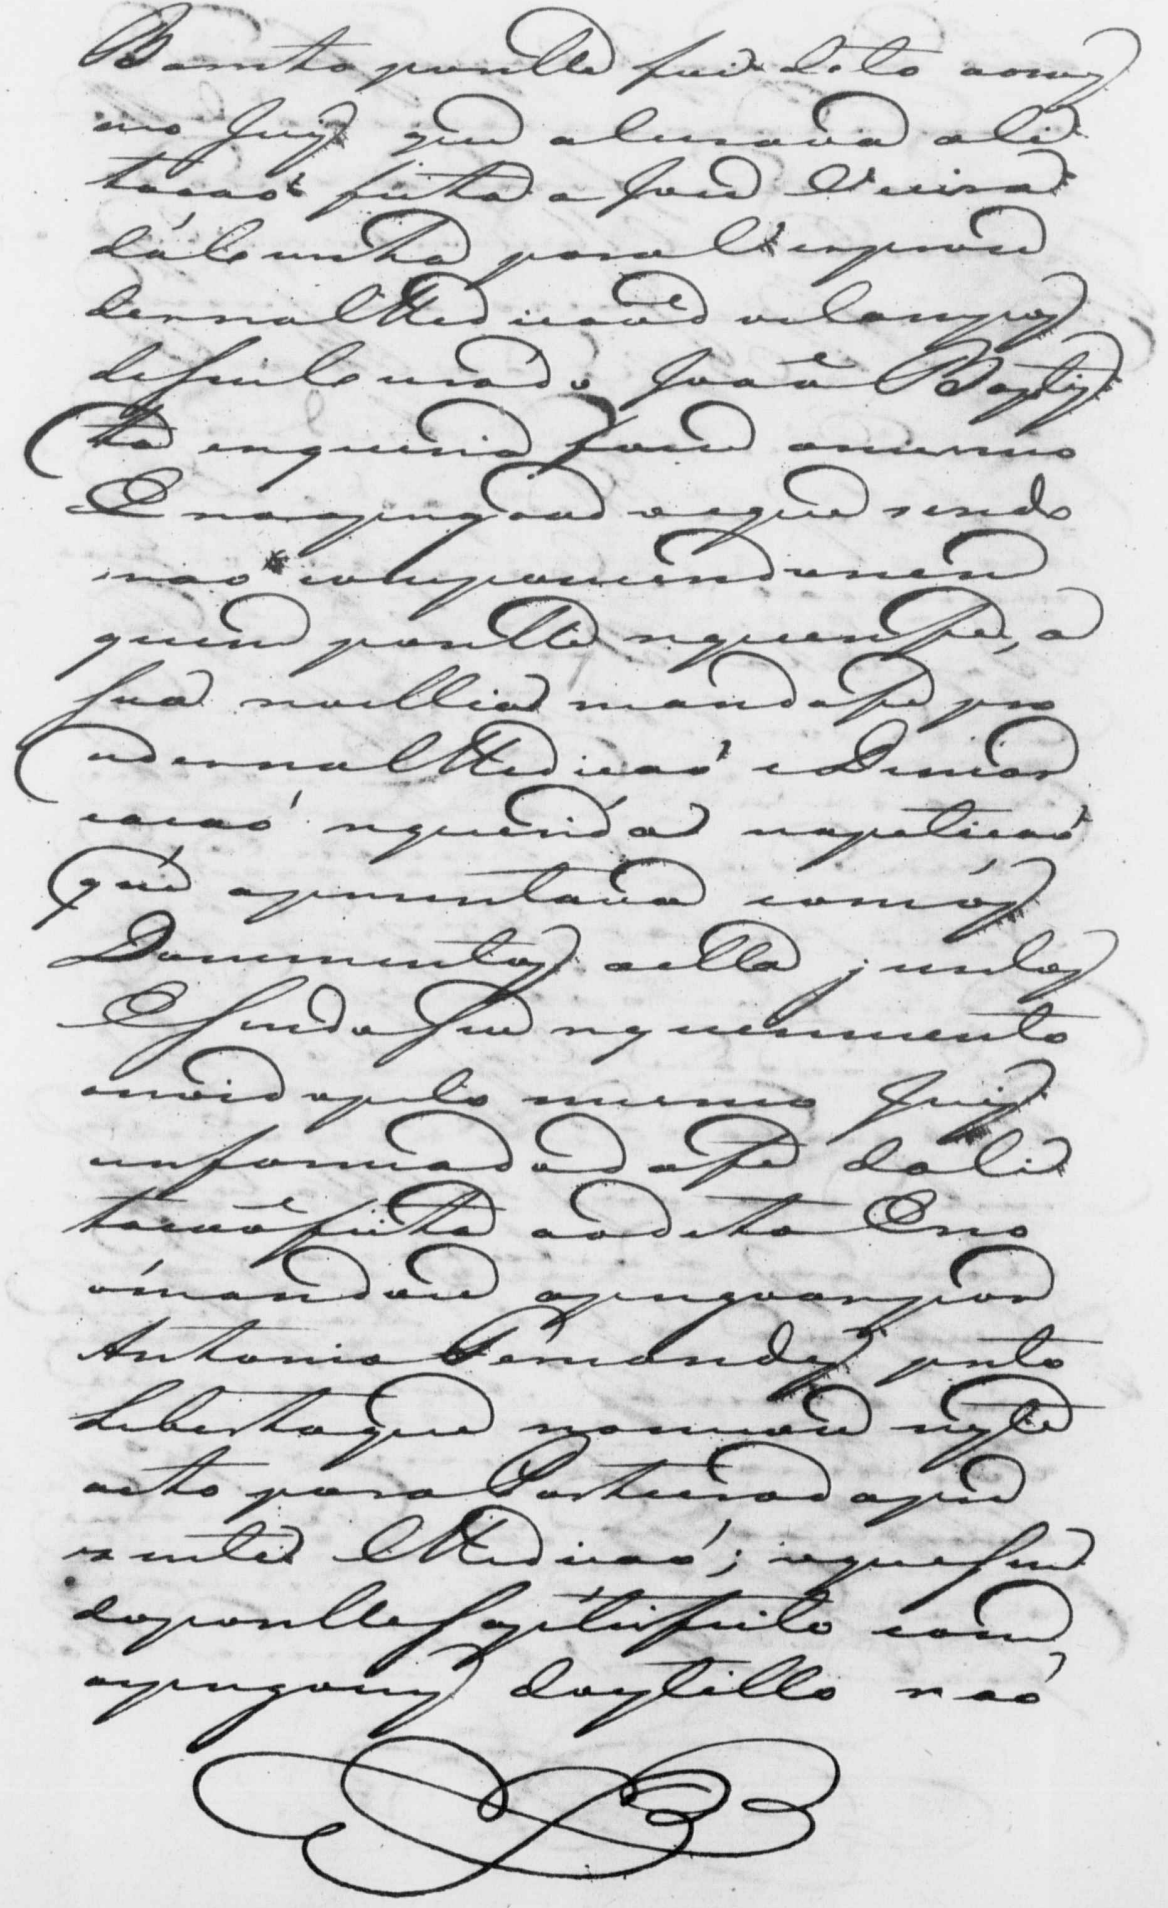 Barreto por elle foi dito aomes
mo Juiz que acuzava aCi
tacaó feita a Joze Vieira
dáCunha para Ver proce
der na Medicaõ do Campos
deseu Curádo Joaõ Baptis
ta erequeria foce omesmo
E na apregoado eque sendo
naó comparecendo nem
quem por elle requerese, a
sua revellia mandase pro
ceder na Medicaó e Demar
cacaó requerida na peticaó
que aprezentava com ós
Documentos aella juntos
E sendo seu requerimento
ouvido pelo mesmo Juiz
emformado da fé da Ci
tacaõ feita ao dito Eno
ó mandou apregoar por
Antonio Fernandes preto
Liberto que nomeou neste
acto para Porteiro da pre
zente Medicaó; eque sen
do por elle Satisfeito com
apregoens do estillo naó